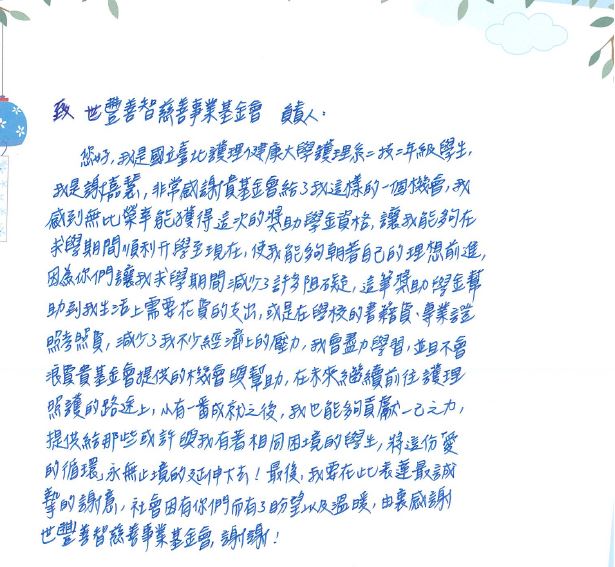 致 世豐善智慈善事業基金會 負責人：
您好，我是國立臺北護理健康大學護理系二技二年級學生，
我是謝嘉慧，非常感謝貴基金會給了我這樣的一個機會，我
感到無比榮幸能獲得這次的獎助學金資格，讓我能夠在
求學期間順利升學至現在，使我能夠朝著自己的理想前進，
因為你們讓我求學期間減少了許多阻礙，這筆獎助學金幫
助到我生活上需要花費的支出，或是在學校的書籍費、專業證
照考照費，減少了我不少經濟上的壓力，我會盡力學習，並且不會
浪費貴基金會提供的機會與幫助，在未來繼續前往護理
照護的路途上，以有一番成就之後，我也能夠貢獻一己之力，
提供給那些或許與我有著相同困境的學生，將這份愛
的循環，永無止境的延伸下去！最後，我要在此表達最誠
摯的謝意，社會因有你們而有了盼望以及溫暖，由衷感謝
世豐善智慈善事業基金會，謝謝！